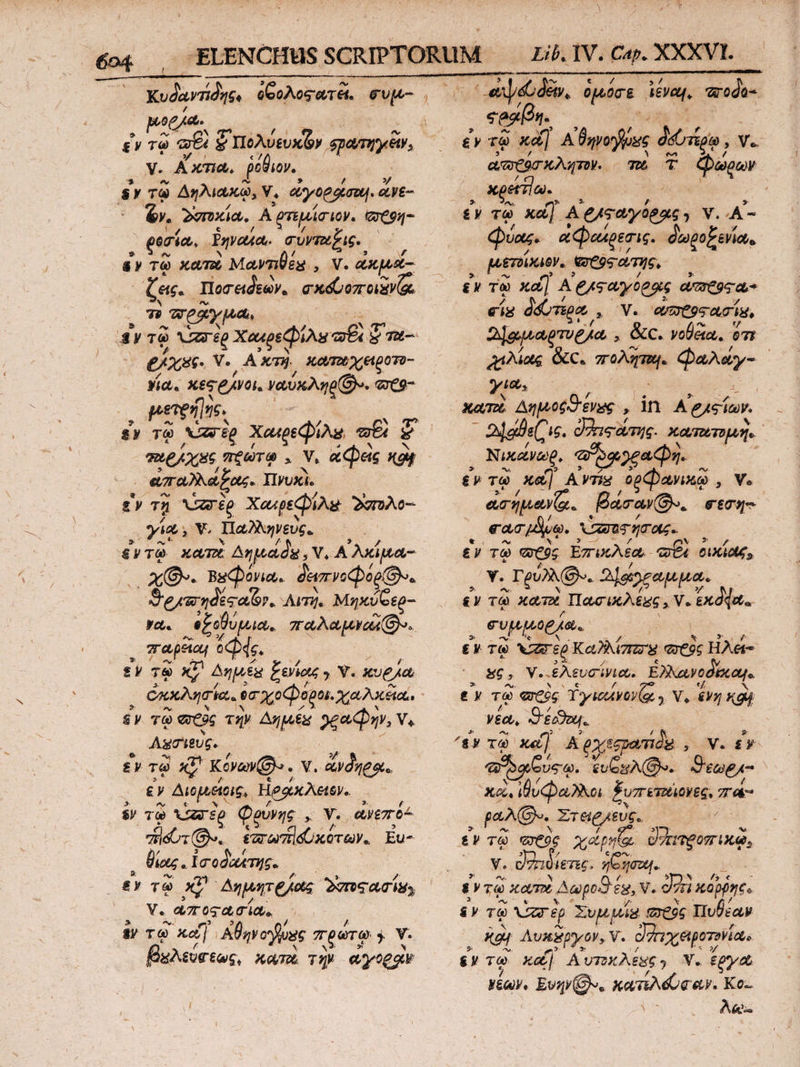 604 ELENCHUS SCRIPTORUM Lib. IV. Cap. XXXVI.
Κυδαντίδης. ὀβολοστάτει. συμ-
μορία.
ἐν τῷ περὶ τῶ Πολυευκτον στρατηγεῖν,
V. Ἀκτία. ῥόθιον.
ἐν τῷ Δηλιακῷ, V. ἀγοράσαι. ἀνε-
τον. ἀποικία. Ἀρτεμίσιον. προη-
ροσία. Ῥηναία. σύνταξις.
ἐν τῷ κατὰ Μαντιθέου, V. ἀκμά-
ζεις. Ποσειδεών. σκευοποιοῦντα
τὸ πρᾶγμα.
ἐν τῷ ὑπὲρ Χαιρεφίλου περὶ τῶ τα-
ρίχους. V. Ἀκτή. καταχειροτο-
νία. κεστρῖνοι. ναύκληρος. προ-
μετρητής.
ἐν τῷ ὑπὲρ Χαιρεφίλου περὶ τῶ
ταρίχους πρώτῳ, V. ἀφεὶς καὶ
ἀπαλλάξας. Πνυκί.
ἐν τῇ ὑπὲρ Χαιρεφίλου ἀπολο-
γίᾳ, V. Παλληνεύς.
ἐν τῷ κατὰ Δημάδου, V. Ἀλκίμα-
χος. Βουφόνια. δειπνοφόρος.
θριπηδέστατον. Λιτή. Μηκυβερ-
να. ὀξυθύμια. παλαμναῖος.
παρεῖαι ὄφεις.
ἐν τῷ κατ Δημέου ξενίας, V. κυρία
ἐκκλησία. ὀσχοφόροι. χαλκεῖα.
ἐν τῷ πρὸς τὴν Δημέου γραφήν, V.
Λουσιεύς.
ἐν τῷ κατ Κόνωνος. V. ἀνδηρα.
ἐν Διομείοις. Ἡράκλειον.
ἐν τῷ ὑπὲρ Φρύνης, V. ἀνεπό-
πτευτος. ἐπωπτευκότων. Εὐ-
θίας. Ἰσοδαίτης.
ἐν τῷ κατ Δημητρίας ἀποστασίου,
V. ἀποστασία.
ἐν τῷ κατ Ἀθηνογένους πρώτῳ, V.
βουλεύσεως. κατὰ τὴν ἀγορὰν
ἀψευδεῖν. ὁμόσε ἰέναι. ποδο-
στράβη.
ἐν τῷ κατ Ἀθηνογένους δευτέρῳ, V.
ἀπρόσκλητον. τὰ τ φώρων
κρείττω.
ἐν τῷ κατ Ἀρισταγόρας, V. Ἀ-
φύας. ἀφαίρεσις. δωροξενία.
μετοίκιον. προστάτης.
ἐν τῷ κατ Ἀρισταγόρας ἀπροστα-
σίου δευτέρᾳ, V. ἀπροστασίου.
διαμαρτυρία, &c. νοθεῖα. ὅτι
χιλίας &c. πολῆται. φαλαγ-
γία.
κατὰ Δημοσθένους, in Ἀρίστων.
διάθεσις. ἐπιστάτης. κατατομή.
Νικάνωρ. παραγραφή.
ἐν τῷ κατ Ἀντίου ὀρφανικῷ, V.
ἀσήμαντα. βάσανος. σεση-
σασμένῳ. ὑποστήσας.
ἐν τῷ πρὸς Ἐπικλέα περὶ οἰκίας,
V. Γρύλλος. διάγραμμα.
ἐν τῷ κατὰ Πασικλέους, V. ἐκδεῖα.
συμμορία.
ἐν τῷ ὑπὲρ Καλλίππου πρὸς Ἠλεί-
ους, V. ἐλευσίνια. Ἑλλανοδίκαι.
ἐν τῷ πρὸς Ὑγιαίνοντα, V. ἔνη καὶ
νέα. θέσθαι.
ἐν τῷ κατ Ἀρχεστρατίδου, V. ἐν
παραβύστῳ. εὔβουλος. θεωρι-
κά. ἰθύφαλλοι ξυπεταίονες. πά-
ραλος. Στειριεύς.
ἐν τῷ πρὸς χάρητα ἐπιτροπικῷ,
V. ἐπιδίετες. ἡβῆσαι.
ἐν τῷ κατὰ Δωροθέου, V. ἐπὶ κόρρης.
ἐν τῷ ὑπὲρ Συμμίου πρὸς Πυθέαν
καὶ Λυκοῦργον, V. ἐπιχειροτονία.
ἐν τῷ κατ Αὐτοκλέους, V. ἔργα
νέων. Εὔηνος. κατέλευσαν. Κο-
λω-